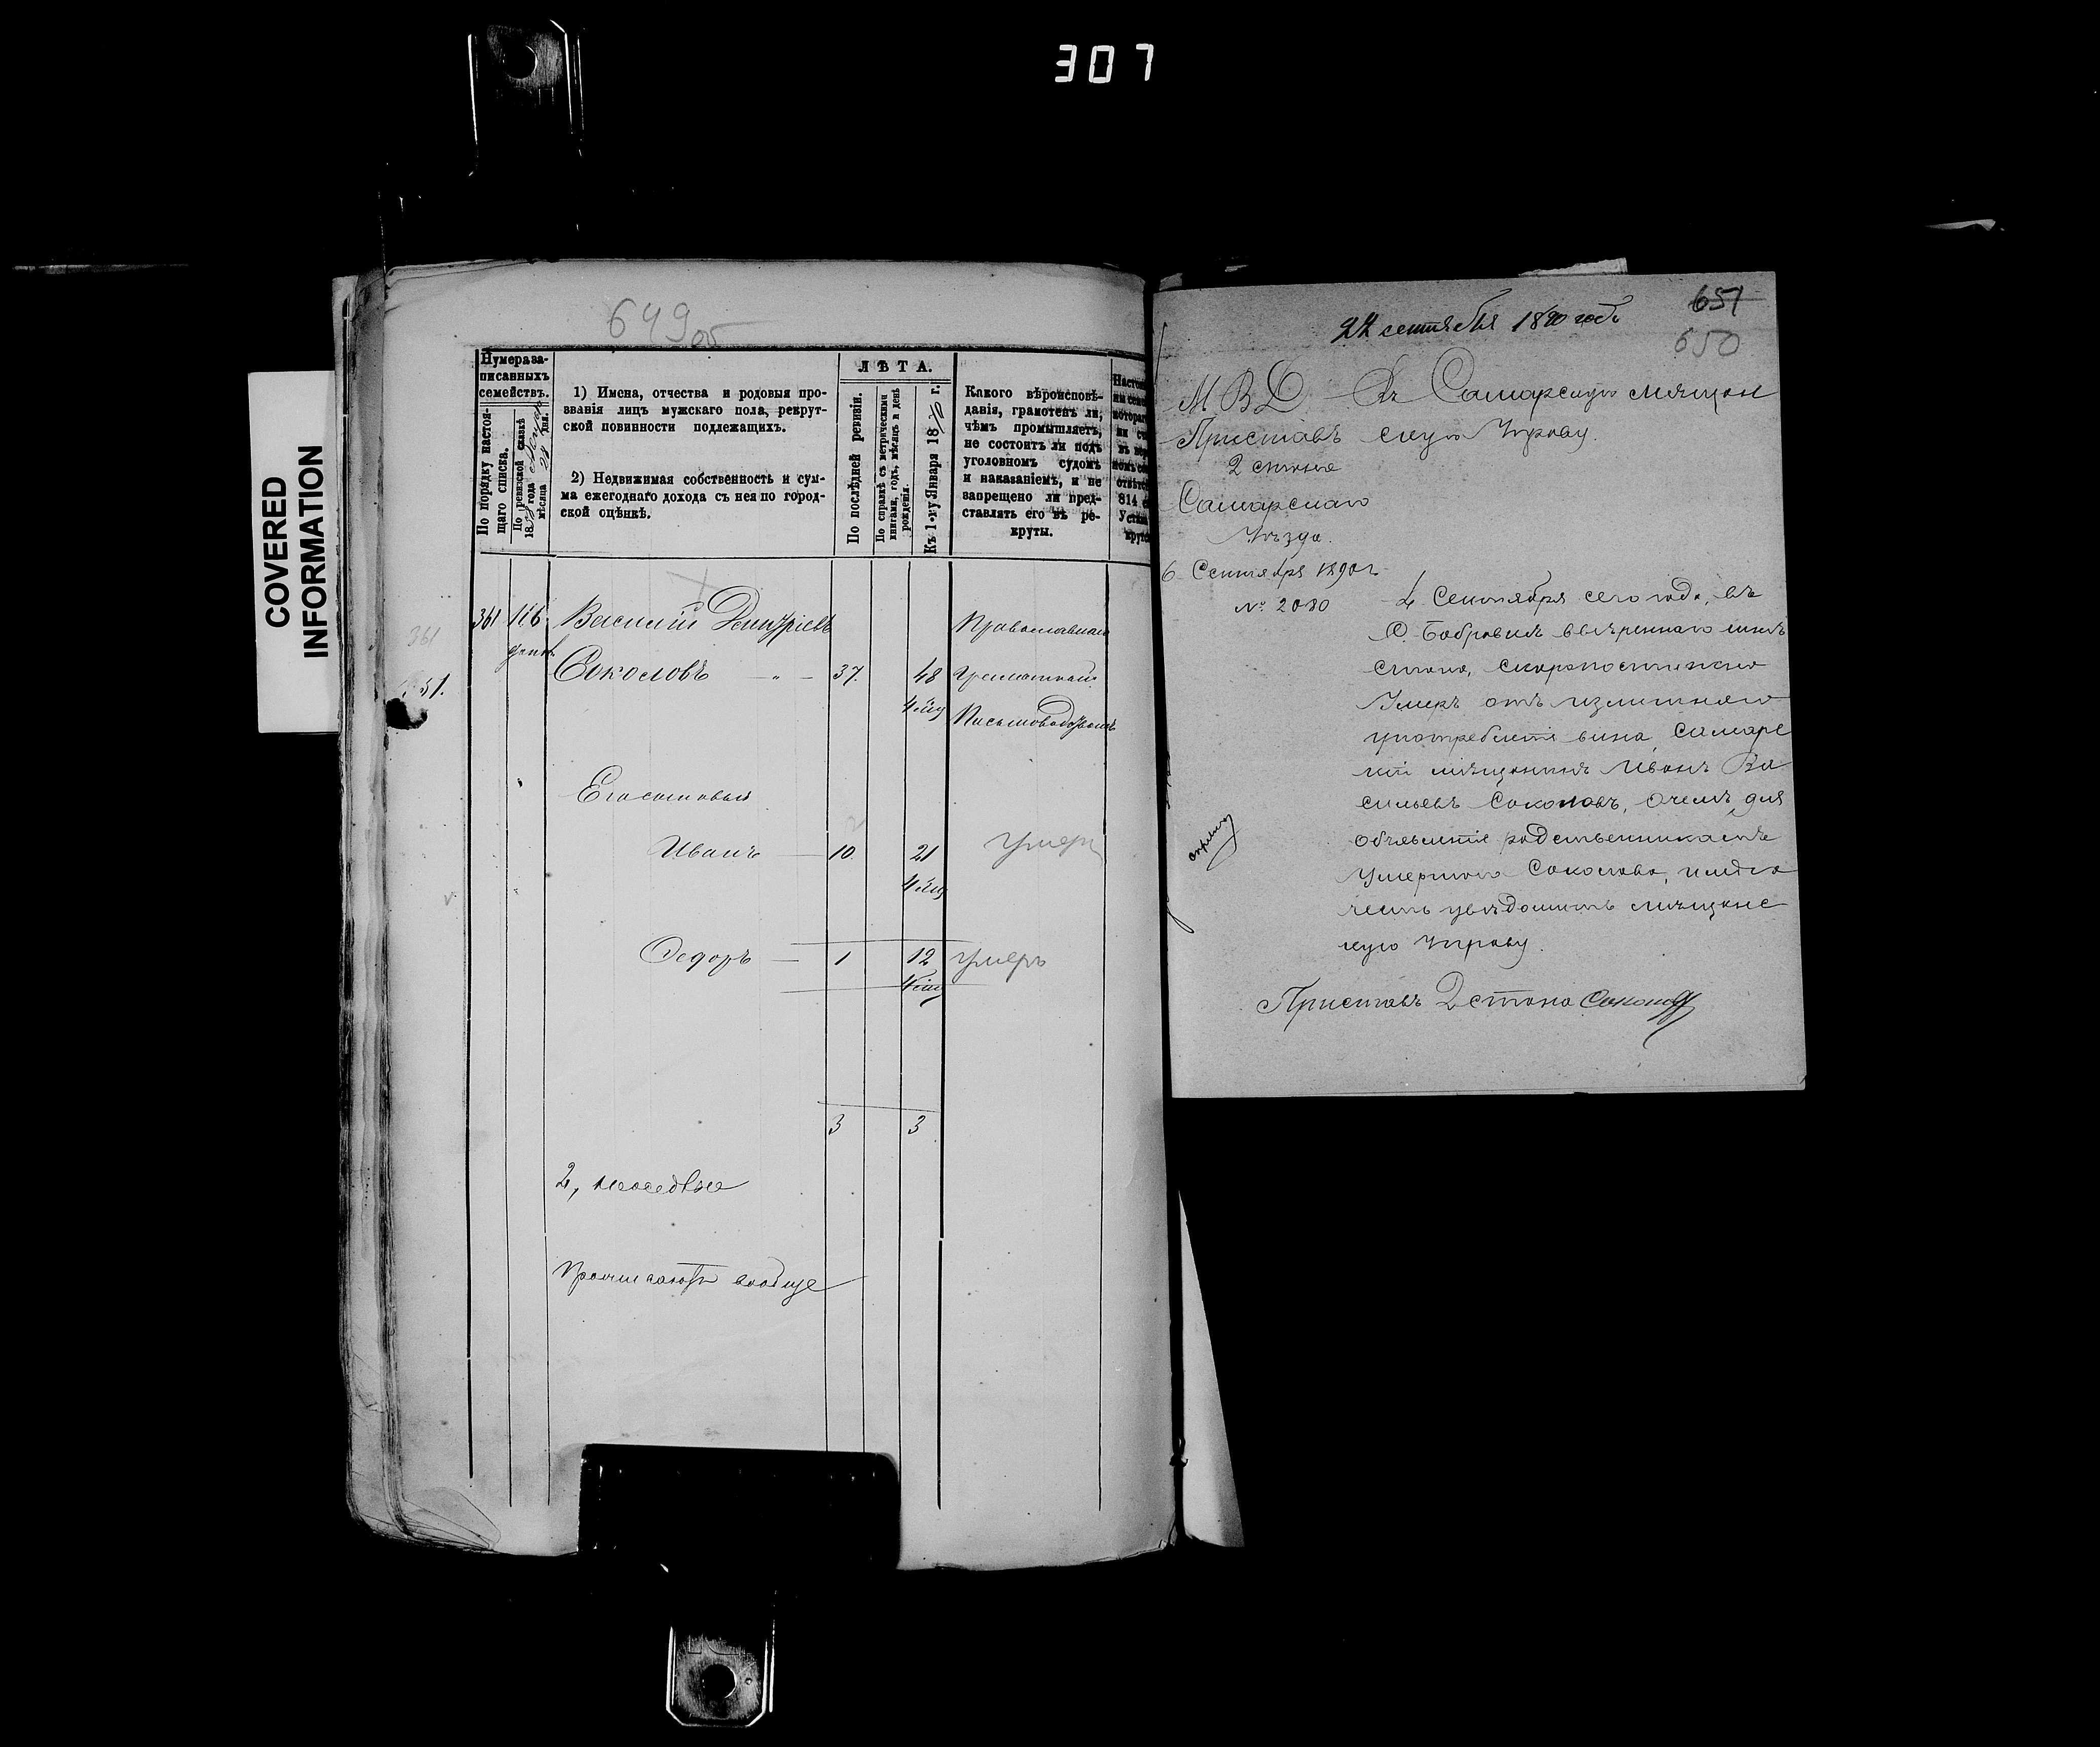 307
COVERED
INFORMATION
649 об
Нумера за-
писанныхъ
семействъ.
По порядку настоя-
щаго списка.
По ревизской сказкѣ
18 года
мѣсяца дня.
1) Имена, отчества и родовыя про-
званія лицъ мужскаго пола, рекрут-
ской повинности подлежащихъ.
2) Недвижимая собственность и сум-
ма ежегоднаго дохода съ нея по город-
ской оцѣнкѣ.
ЛѢТА.
По послѣдней ревизіи.
По справкѣ съ метрическими
книгами, годъ, мѣсяцъ и день
рожденія.
Къ 1-му Января 1870 г.
Какого вѣроисповѣ-
данія, грамотенъ ли,
чѣмъ промышляетъ,
не состоитъ ли подъ
уголовномъ судомъ
и наказаніемъ, и не
запрещено ли пред-
ставлять его въ ре-
круты.
361 116 Василій Дмитріевъ Православнаго
361
Соколовъ 37 48 Грамотный
51. 4 мѣц Письмоводствомъ
Его сыновья
Иванъ 10 21 умеръ
4 мѣц
Федоръ 1 12 умеръ
4 мѣц
3 3
2, неоседлые
Прочитаютъ вообще
22 сентября 1890 года
651
650
М В Д Въ Самарскую мѣщан
Приставъ скую Управу.
2 стана
Самарскаго
Уѣзда.
6 Сентября 1890 г.
№ 2080
4 Сентября сего года, въ
с. Бобровкѣ ввѣреннаго мнѣ
стана, скоропостижно
умеръ отъ излишняго
употребленія вина, Самарс
кій мѣщанинъ Иванъ Ва
сильевъ Соколовъ, о чемъ, для
объявленія родственникамъ
умершаго Соколова, имѣю
честь увѣдомить мѣщанс
кую Управу.
Приставъ 2 стана